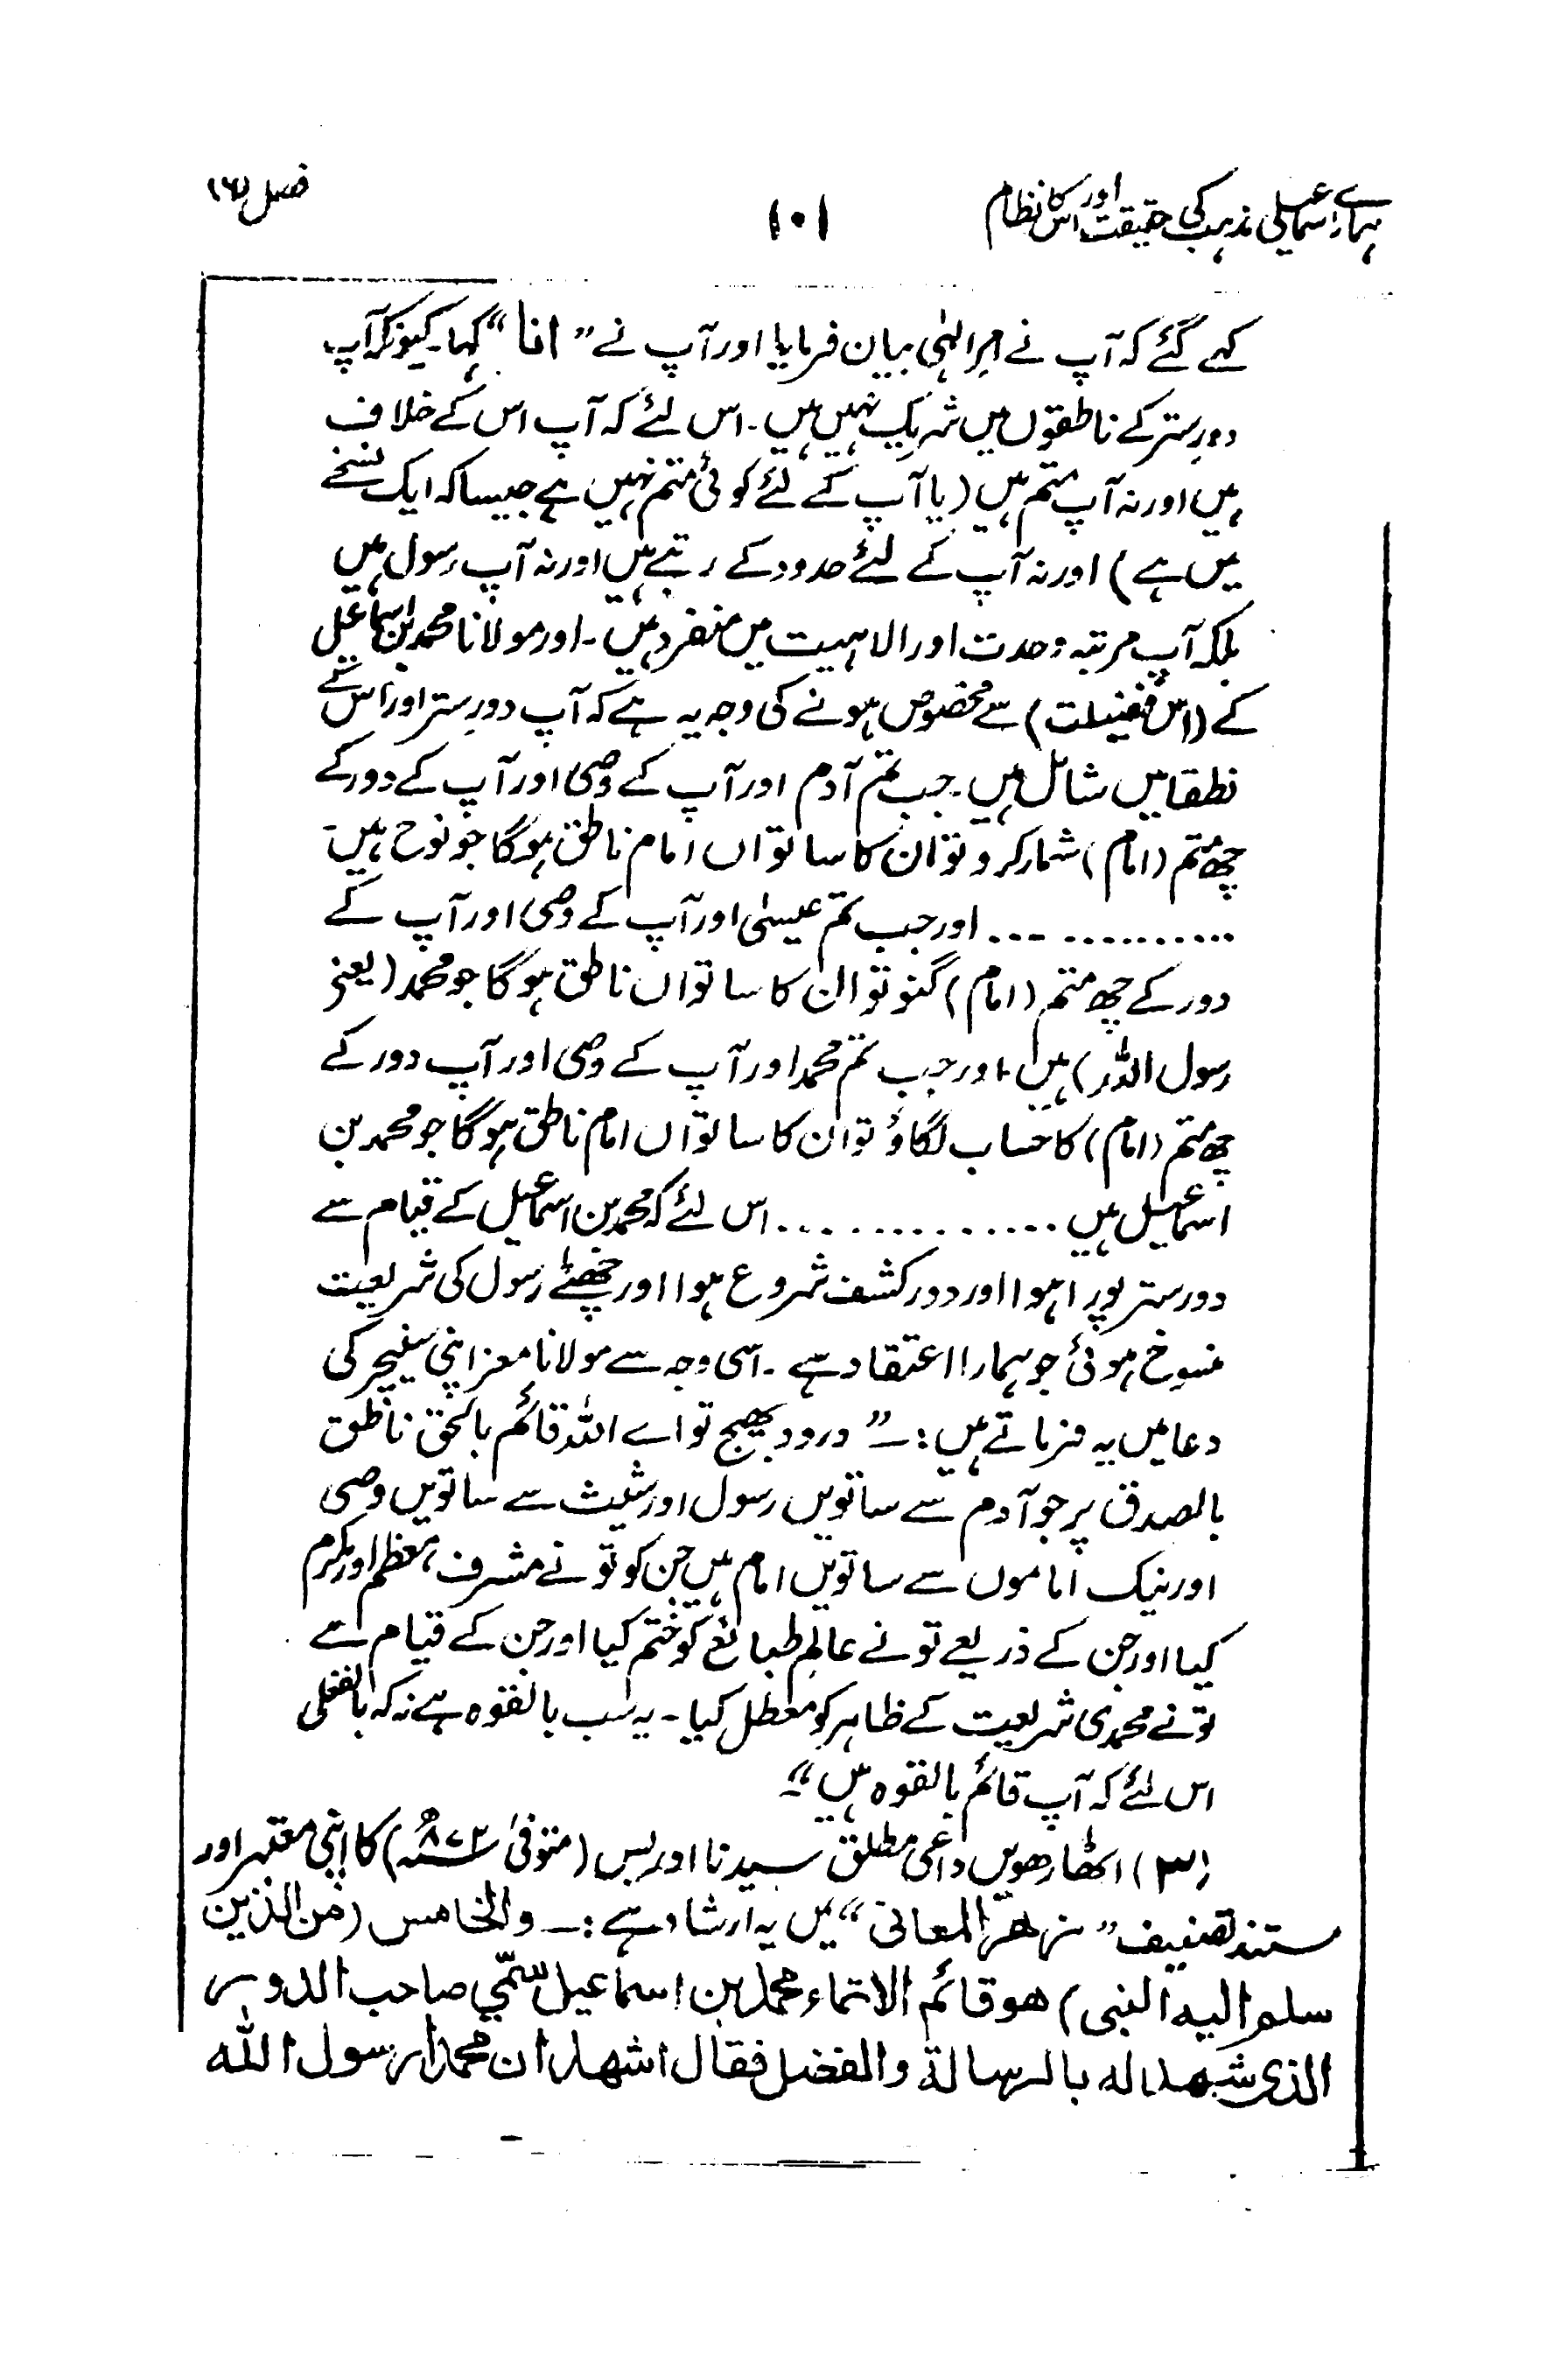 ہمارے اسماعیلی مذہب کی حقیقت اور اس کا نظام
۱۰۱
فصل (۶)
کہے گئے کہ آپ نے امرِ الٰہی بیان فرمایا اور آپ نے "انا" کہا۔ کیونکہ آپ
دورِ ستر کے ناطقوں میں شریک نہیں ہیں۔ اس لئے کہ آپ اس کے خلاف
ہیں اور نہ آپ متم ہیں (یا آپ کے لئے کوئی متم نہیں ہے جیسا کہ ایک نسخے
میں ہے) اور نہ آپ کے لئے حدود کے رتبے ہیں اور نہ آپ رسول ہیں
بلکہ آپ مرتبہ وحدت اور الاہیت میں منفرد ہیں۔ اور مولانا محمد بن اسماعیل
کے (اس فضیلت) سے مخصوص ہونے کی وجہ یہ ہے کہ آپ دورِ ستر اور اس کے
نطقا میں شامل ہیں۔ جب تم آدم اور آپ کے وصی اور آپ کے دور کے
چھ متم (امام) شمار کرو تو ان کا ساتواں امام ناطق ہوگا جو نوح ہیں۔
............. اور جب تم عیسیٰ اور آپ کے وصی اور آپ کے
دور کے چھ متم (امام) گنو تو ان کا ساتواں ناطق ہوگا جو محمد (یعنی
رسول اللہ) ہیں۔ اور جب تم محمد اور آپ کے وصی اور آپ دور کے
چھ متم (امام) کا حساب لگاؤ تو ان کا ساتواں امام ناطق ہوگا جو محمد بن
اسماعیل ہیں .............. اس لئے کہ محمد بن اسماعیل کے قیام سے
دورِ ستر پورا ہوا اور دور کشف شروع ہوا اور چھٹے رسول کی شریعت
منسوخ ہوئی جو ہمارا اعتقاد ہے۔ اسی وجہ سے مولانا معز اپنی سنیچر کی
دعا میں یہ فرماتے ہیں:۔ "درود بھیج تو اے اللہ قائم بالحق ناطق
بالصدق پر جو آدم سے ساتویں رسول اور شیث سے ساتویں وصی
اور نیک اماموں سے ساتویں امام ہیں جن کو تو نے مشرف، معظم اور مکرم
کیا اور جن کے ذریعے تو نے عالمِ طبائع کو ختم کیا اور جن کے قیام سے
تو نے محمدی شریعت کے ظاہر کو معطل کیا۔ یہ سب بالقوہ ہے نہ کہ بالفعلی
اس لئے کہ آپ قائم بالقوہ ہیں"۔
(۳) اٹھارھویں داعی مطلق سیدنا ادریس (متوفیٰ ۸۷۲ھ) کا اپنی معتبر اور
مستند تصنیف "زہر المعانی" میں یہ ارشاد ہے:۔ والخامس (من الذین
سلم الیہ النبی) ھو قائم الائماء محمد بن اسماعیل سمّی صاحب الدور
الذی شھد لہ بالرسالۃ والفضل فقال اشھد ان محمدا رسول اللہ